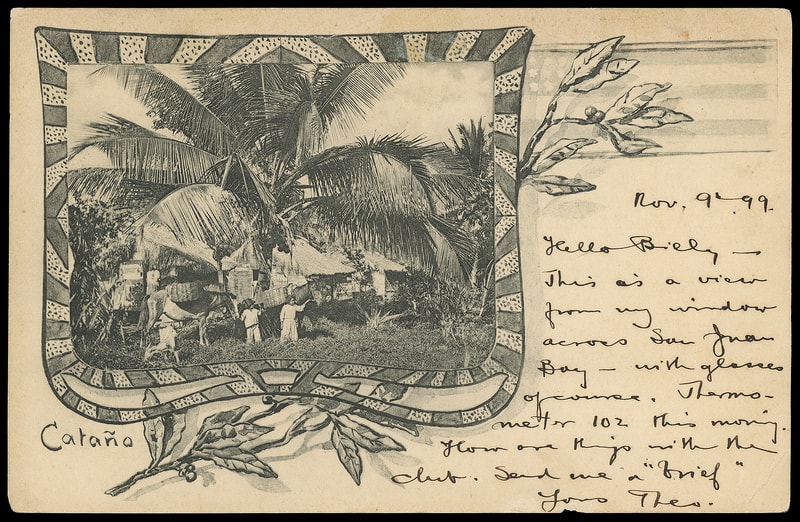 Nov. 9th 99.
Hello Billy —
This is a view
from my window
across San Juan
Bay — with glasses
of course. Thermo-
meter 102 this morning.
How are things with the
club. Send me a "brief"
Yours Theo.
Cataño